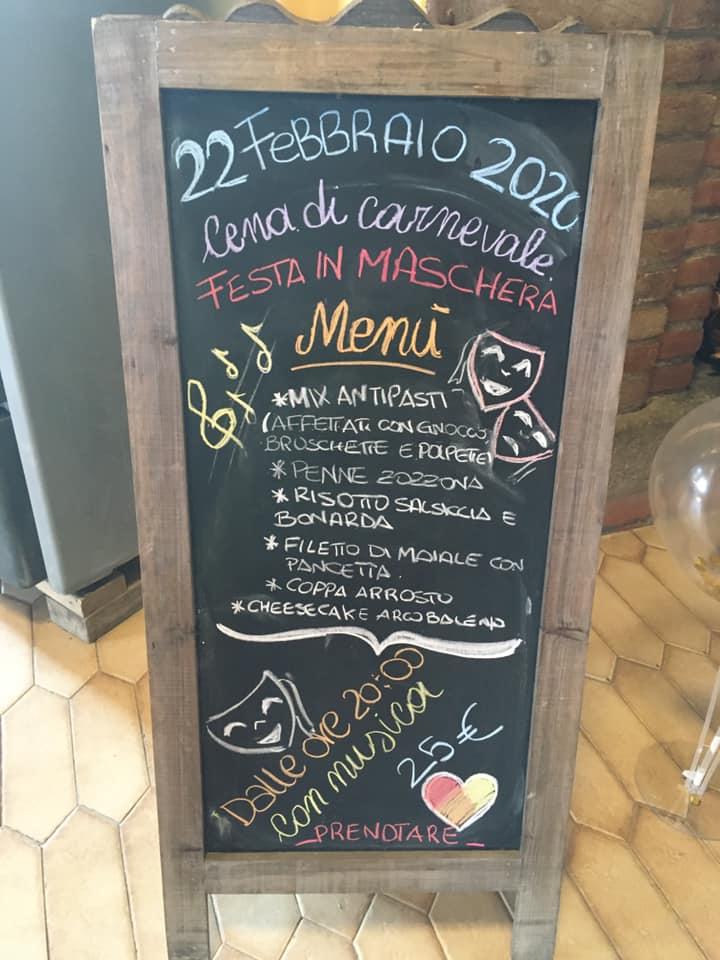 22 FeBBRAIO 2020
Cena di carnevale
FESTA IN MASCHERA
Menù
*MIX ANTIPASTI
(AFFETTATI CON GNOCCO
BRUSCHETTE E POLPETTE)
* PENNE ZOZZONA
* RISOTTO SALSICCIA E
BONARDA
* FILETTO DI MAIALE CON
PANCETTA.
* COPPA ARROSTO
*CHEESECAKE ARCOBALENO
Dalle ore 20:00
con musica
25€
_PRENOTARE_